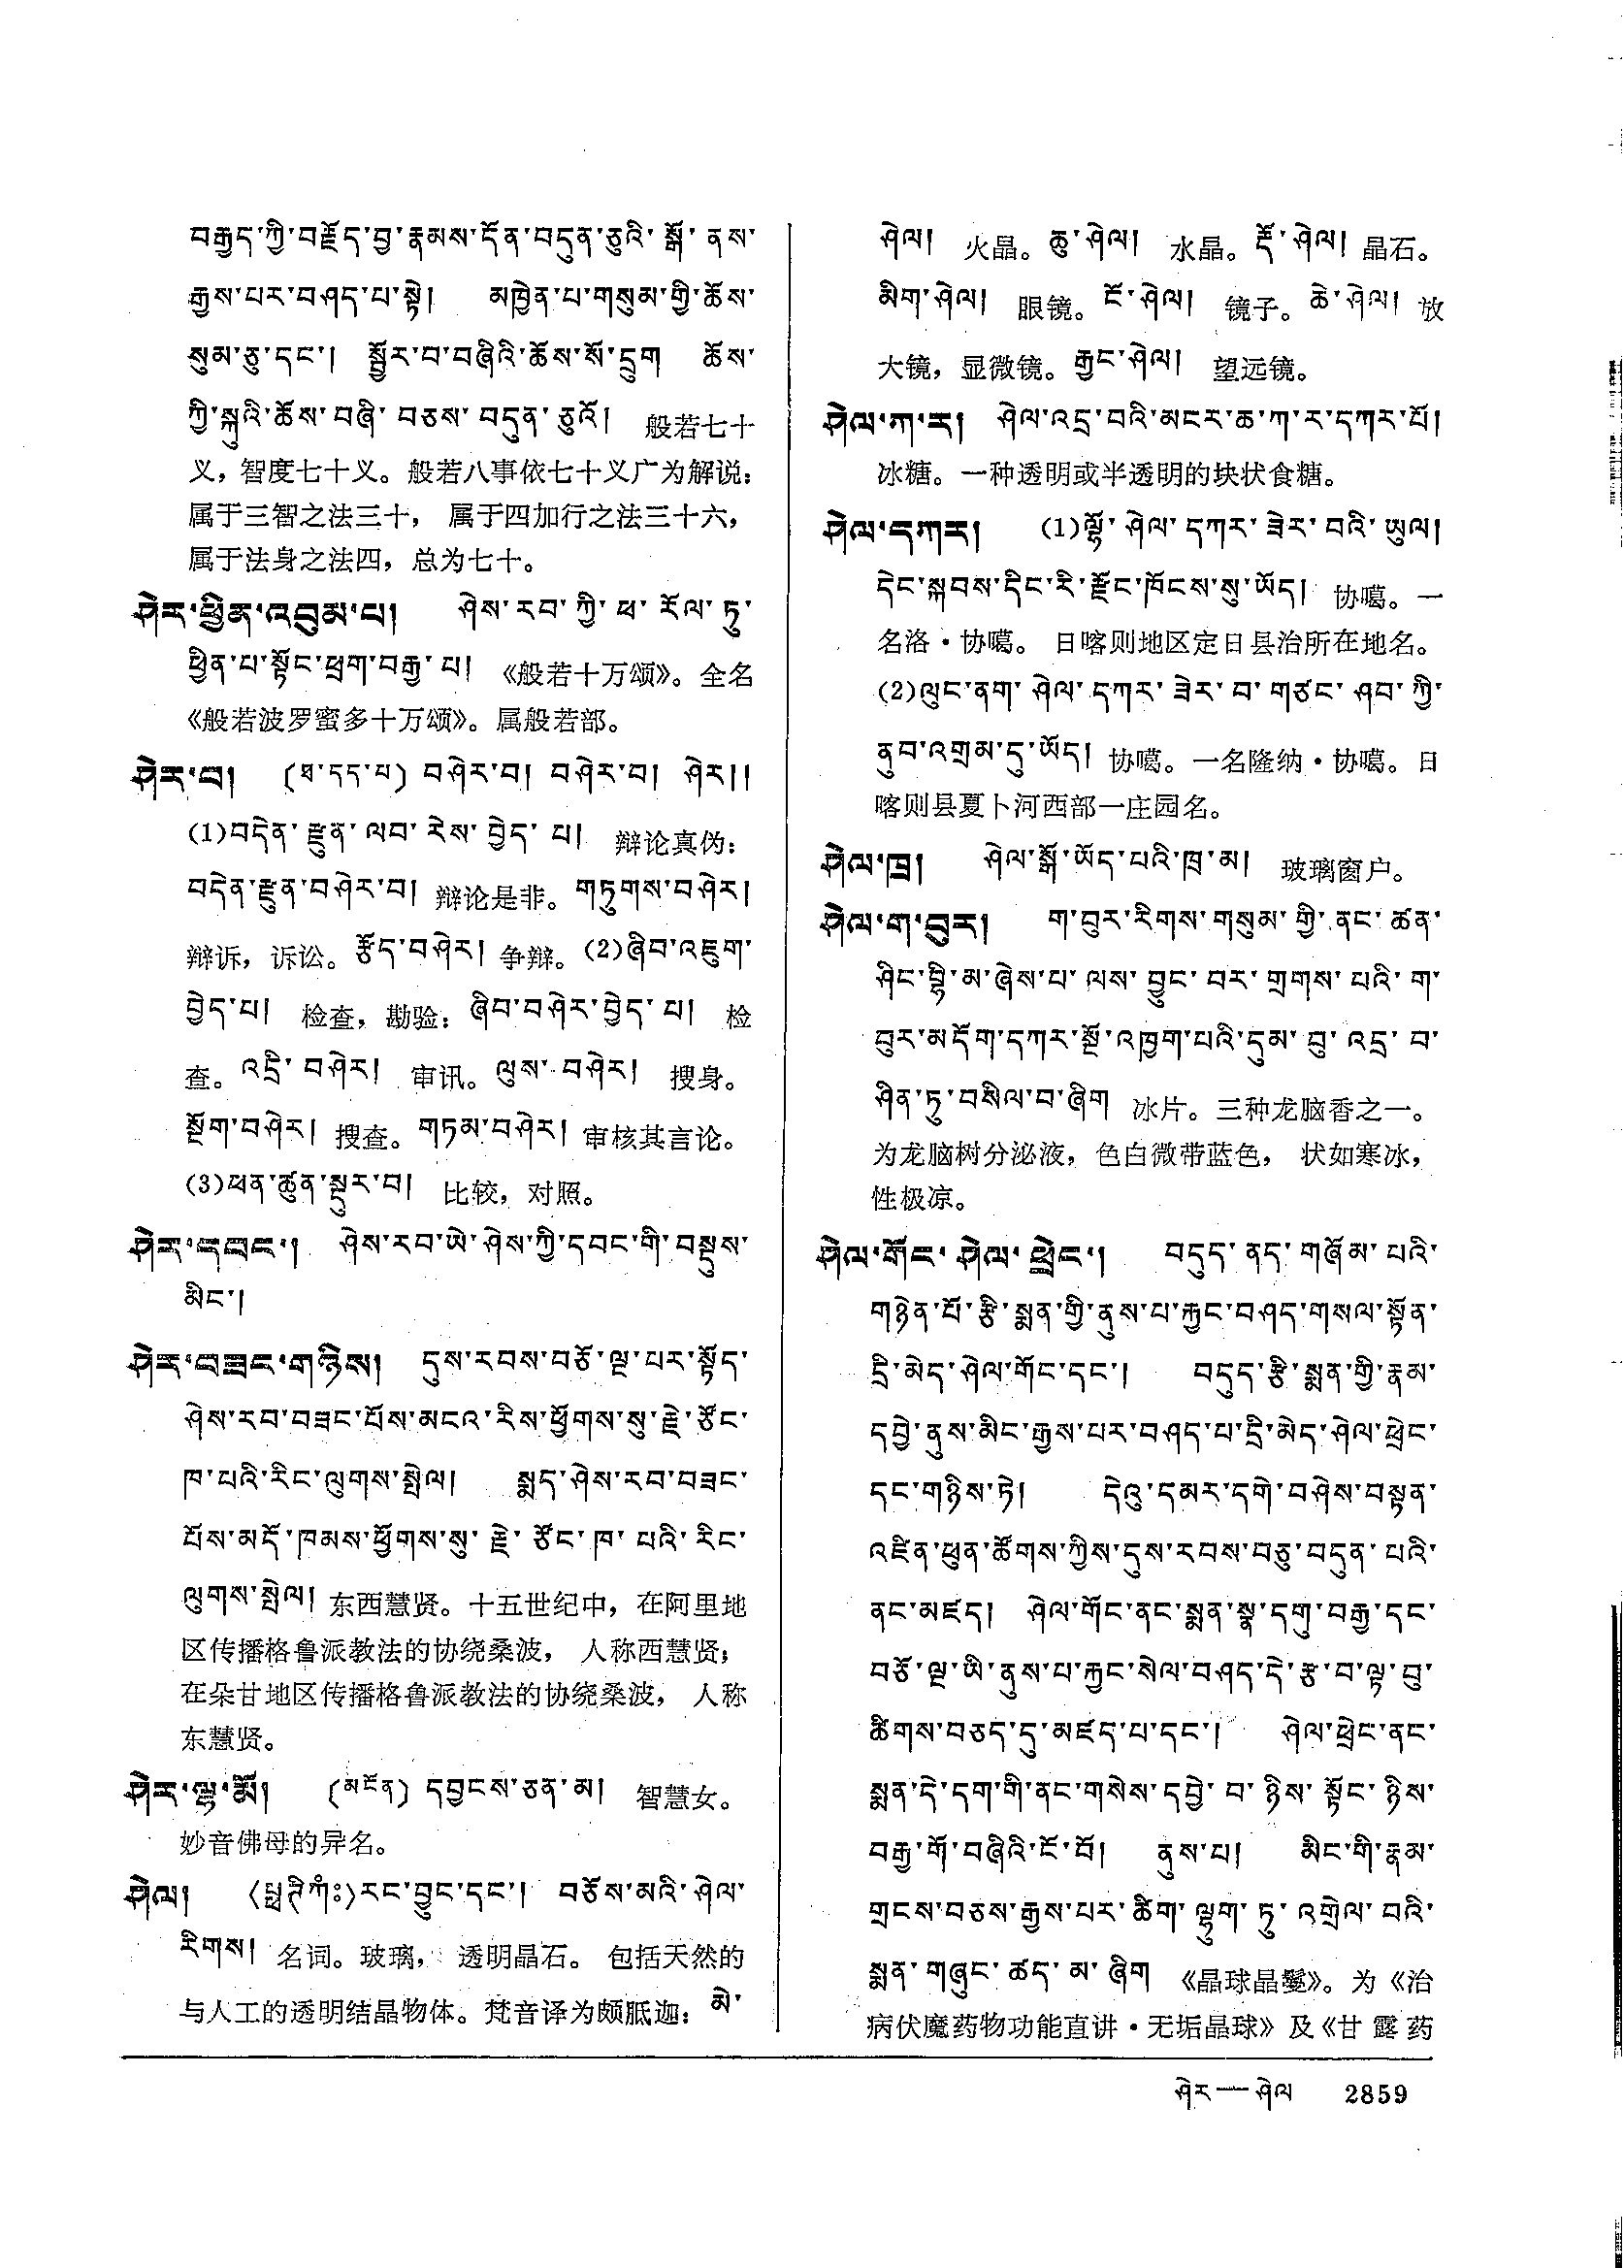 བརྒྱད་ཀྱི་བརྗོད་བྱ་རྣམས་དོན་བདུན་ཅུའི་སྒོ་ནས་
རྒྱས་པར་བཤད་པ་སྟེ། མཁྱེན་པ་གསུམ་གྱི་ཆོས་
སུམ་ཅུ་དང་། སྦྱོར་བ་བཞིའི་ཆོས་སོ་དྲུག ཆོས་
ཀྱི་སྐུའི་ཆོས་བཞི་བཅས་བདུན་ཅུའོ། 般若七十
义，智度七十义。般若八事依七十义广为解说：
属于三智之法三十，属于四加行之法三十六，
属于法身之法四，总为七十。
ཤེར་ཕྱིན་འབུམ་པ། ཤེས་རབ་ཀྱི་ཕ་རོལ་ཏུ་
ཕྱིན་པ་སྟོང་ཕྲག་བརྒྱ་པ། 《般若十万颂》。全名
《般若波罗蜜多十万颂》。属般若部。
ཤེར་བ། (ཐ་དད་པ) བཤེར་བ། བཤེར་བ། ཤེར།།
(1)བདེན་རྫུན་ལབ་རེས་བྱེད་པ། 辩论真伪：
བདེན་རྫུན་བཤེར་བ། 辩论是非。གཏུགས་བཤེར།
辩诉，诉讼。རྩོད་བཤེར། 争辩。(2)ཞིབ་འཇུག་
བྱེད་པ། 检查，勘验：ཞིབ་བཤེར་བྱེད་པ། 检
查。འདྲི་བཤེར། 审讯。ལུས་བཤེར། 搜身。
སྔོག་བཤེར། 搜查。གཏམ་བཤེར། 审核其言论。
(3)ཕན་ཚུན་སྡུར་བ། 比较，对照。
ཤེར་དབང་། ཤེས་རབ་ཨེ་ཤེས་ཀྱི་དབང་གི་བསྡུས་
མིང་།
ཤེར་བཟང་གཉིས། དུས་རབས་བཅོ་ལྔ་པར་སྟོད་
ཤེས་རབ་བཟང་པོས་མངའ་རིས་ཕྱོགས་སུ་རྗེ་ཙོང་
ཁ་པའི་རིང་ལུགས་སྤེལ། སྨད་ཤེས་རབ་བཟང་
པོས་མདོ་ཁམས་ཕྱོགས་སུ་རྗེ་ཙོང་ཁ་པའི་རིང་
ལུགས་སྤེལ། 东西慧贤。十五世纪中，在阿里地
区传播格鲁派教法的协绕桑波，人称西慧贤；
在朵甘地区传播格鲁派教法的协绕桑波，人称
东慧贤。
ཤེར་ལྷ་མོ། (མངོན) དབྱངས་ཅན་མ། 智慧女。
妙音佛母的异名。
ཤེལ། རང་བྱུང་དང་། བཅོས་མའི་ཤེལ་
རིགས། 名词。玻璃，透明晶石。包括天然的
与人工的透明结晶物体。梵音译为颇胝迦：མེ་
ཤེལ། 火晶。ཆུ་ཤེལ། 水晶。རྡོ་ཤེལ། 晶石。
མིག་ཤེལ། 眼镜。ངོ་ཤེལ། 镜子。ཆེ་ཤེལ། 放
大镜，显微镜。རྒྱང་ཤེལ། 望远镜。
ཤེལ་ཀ་ར། ཤེལ་འདྲ་བའི་མངར་ཆ་ཀ་ར་དཀར་པོ།
冰糖。一种透明或半透明的块状食糖。
ཤེལ་དཀར། (1)ལྷོ་ཤེལ་དཀར་ཟེར་བའི་ཡུལ།
དེང་སྐབས་དིང་རི་རྫོང་ཁོངས་སུ་ཡོད། 协噶。一
名洛·协噶。日喀则地区定日县治所在地名。
(2)ལུང་ནག་ཤེལ་དཀར་ཟེར་བ་གཙང་ཤབ་ཀྱི་
ནུབ་འགྲམ་དུ་ཡོད། 协噶。一名隆纳·协噶。日
喀则县夏卜河西部一庄园名。
ཤེལ་ཁྲ། ཤེལ་སྒོ་ཡོད་པའི་ཁྲ་མ། 玻璃窗户。
ཤེལ་ག་བུར། ག་བུར་རིགས་གསུམ་གྱི་ནང་ཚན་
ཤིང་བྷི་མ་ཞེས་པ་ལས་བྱུང་བར་གྲགས་པའི་ག་
བུར་མདོག་དཀར་སྔོ་འཁྱག་པའི་དུམ་བུ་འདྲ་བ་
ཤིན་ཏུ་བསིལ་བ་ཞིག 冰片。三种龙脑香之一。
为龙脑树分泌液，色白微带蓝色，状如寒冰，
性极凉。
ཤེལ་གོང་ཤེལ་ཕྲེང་། བདུད་ནད་གཞོམ་པའི་
གཉེན་པོ་རྩི་སྨན་གྱི་ནུས་པ་རྐྱང་བཤད་གསལ་སྟོན་
དྲི་མེད་ཤེལ་གོང་དང་། བདུད་རྩི་སྨན་གྱི་རྣམ་
དབྱེ་ནུས་མིང་རྒྱས་པར་བཤད་པ་དྲི་མེད་ཤེལ་ཕྲེང་
དང་གཉིས་ཏེ། དེའུ་དམར་དགེ་བཤེས་བསྟན་
འཛིན་ཕུན་ཚོགས་ཀྱིས་དུས་རབས་བཅུ་བདུན་པའི་
ནང་མཛད། ཤེལ་གོང་ནང་སྨན་སྣ་དགུ་བརྒྱ་དང་
བཅོ་ལྔ་ཡི་ནུས་པ་རྐྱང་སེལ་བཤད་དེ་རྩ་བ་ལྟ་བུ་
ཚིགས་བཅད་དུ་མཛད་པ་དང་། ཤེལ་ཕྲེང་ནང་
སྨན་དེ་དག་གི་ནང་གསེས་དབྱེ་བ་ཉིས་སྟོང་ཉིས་
བརྒྱ་གོ་བཞིའི་ངོ་བོ། ནུས་པ། མིང་གི་རྣམ་
གྲངས་བཅས་རྒྱས་པར་ཚིག་ལྷུག་ཏུ་འགྲེལ་བའི་
སྨན་གཞུང་ཚད་མ་ཞིག 《晶球晶鬘》。为《治
病伏魔药物功能直讲·无垢晶球》及《甘露药
ཤེར—ཤེལ 2859